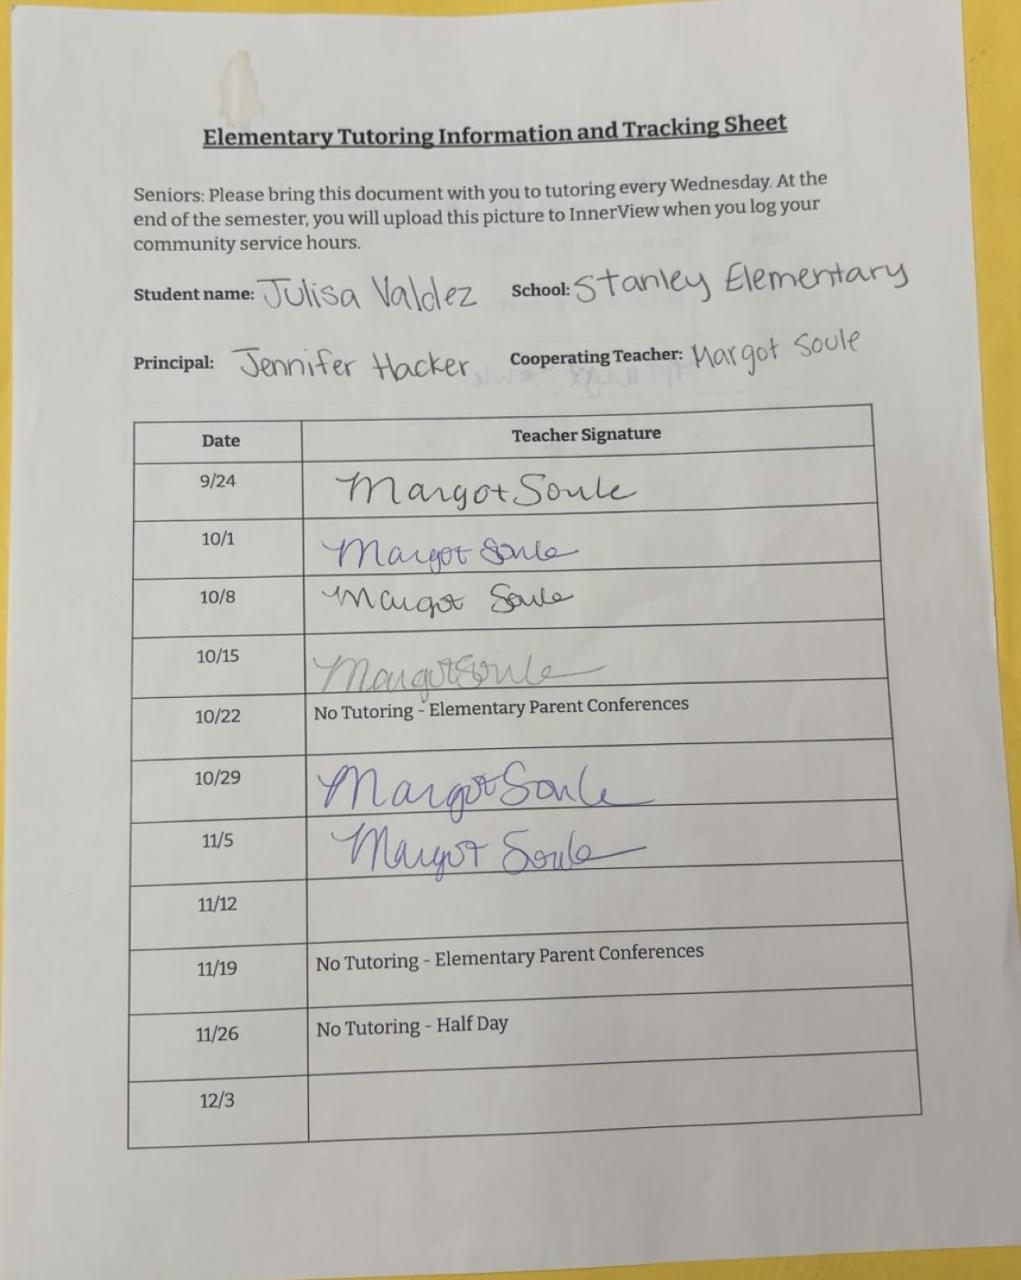 Elementary Tutoring Information and Tracking Sheet
Seniors: Please bring this document with you to tutoring every Wednesday. At the
end of the semester, you will upload this picture to InnerView when you log your
community service hours.
Student name: Julisa Valdez School: Stanley Elementary
Principal: Jennifer Hacker Cooperating Teacher: Margot Soule
Date Teacher Signature
9/24 Margot Soule
10/1 Margot Soule
10/8 Margot Soule
10/15 Margot Soule
10/22 No Tutoring - Elementary Parent Conferences
10/29 Margot Soule
11/5 Margot Soule
11/12
11/19 No Tutoring - Elementary Parent Conferences
11/26 No Tutoring - Half Day
12/3